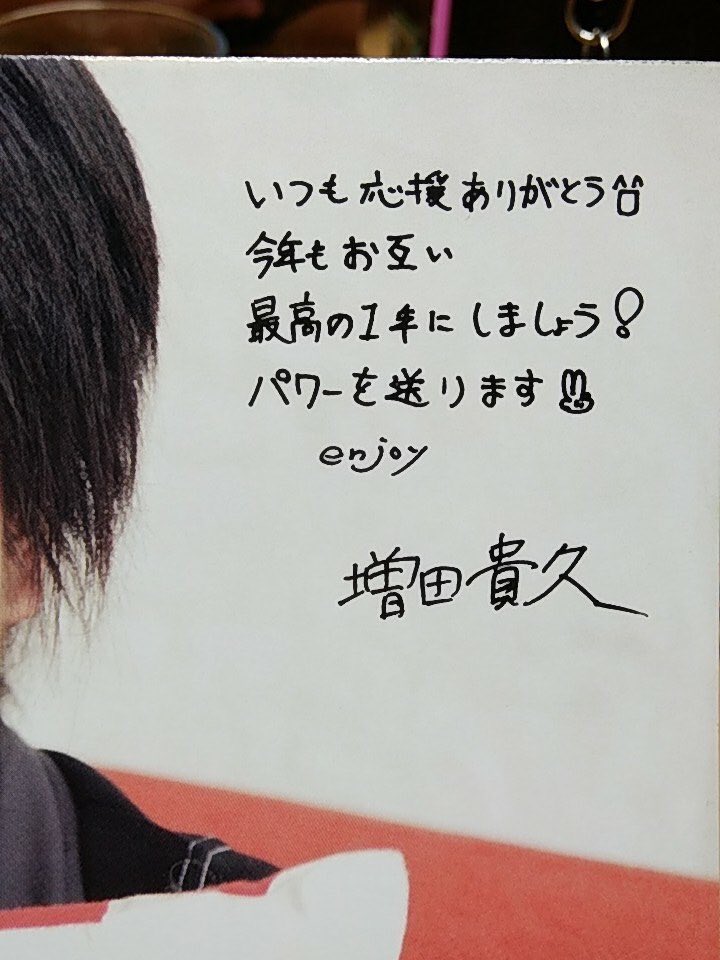 いつも応援ありがとう
今年もお互い
最高の1年にしましょう!
パワーを送ります
enjoy
増田貴久